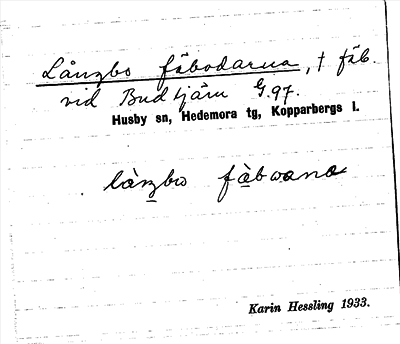 Långbo fäbodarna, † fäb.
vid Budtjärn G.97.
Husby sn, Hedemora tg, Kopparbergs l.
làn̲zbo fà̲bwana
Karin Hessling 1933.